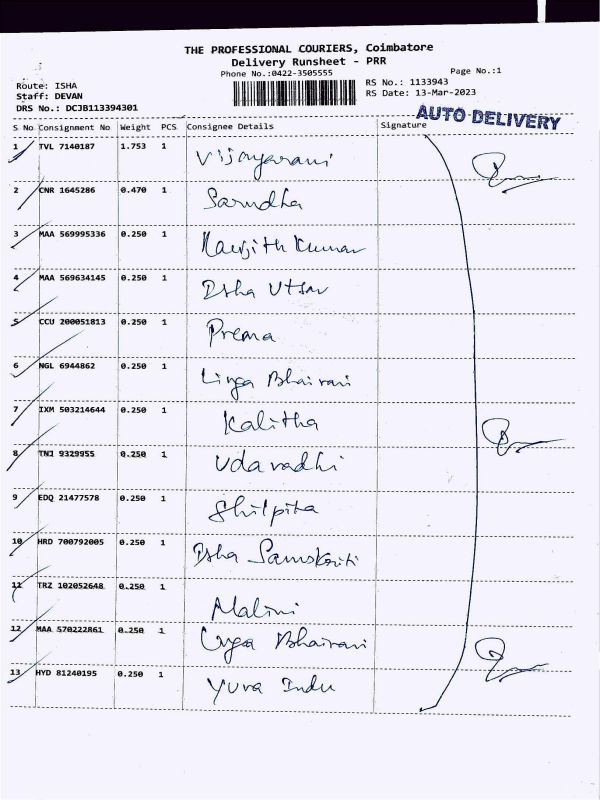 THE PROFESSIONAL COURIERS, Coimbatore
Delivery Runsheet - PRR
Phone No.:0422-3505555
Page No.:1
Route: ISHA
RS No.: 1133943
Staff: DEVAN
RS Date: 13-Mar-2023
DRS No.: DCJB113394301
AUTO DELIVERY
S No Consignment No Weight PCS Consignee Details Signature
1 TVL 7140187 1.753 1 Vijayarani
2 CNR 1645286 0.470 1 Sarudha
3 MAA 569995336 0.250 1 Kumar
4 MAA 569634145 0.250 1 Isha
5 CCU 200051813 0.250 1 Prema
6 NGL 6944862 0.250 1 Linga Bhairavi
7 IXM 503214644 0.250 1 Kalitha
8 TNJ 9329955 0.250 1
9 EDQ 21477578 0.250 1 Shilpita
10 HRD 700792005 0.250 1 Isha Samskriti
11 TRZ 102052648 0.250 1 Malini
12 MAA 570222861 0.250 1 Linga Bhairavi
13 HYD 81240195 0.250 1 Yuva Indu